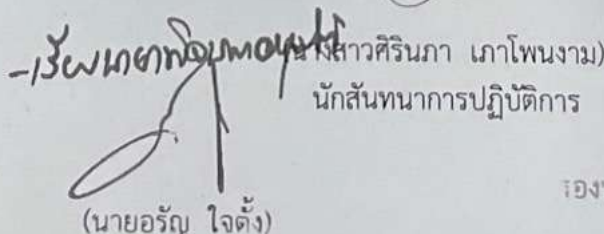 -เรียน นายกพิจารณาอนุมัติ
นางสาวศิรินภา เภาโพนงาม)
นักสันทนาการปฏิบัติการ
รอง
(นายอรัญ ใจตั้ง)